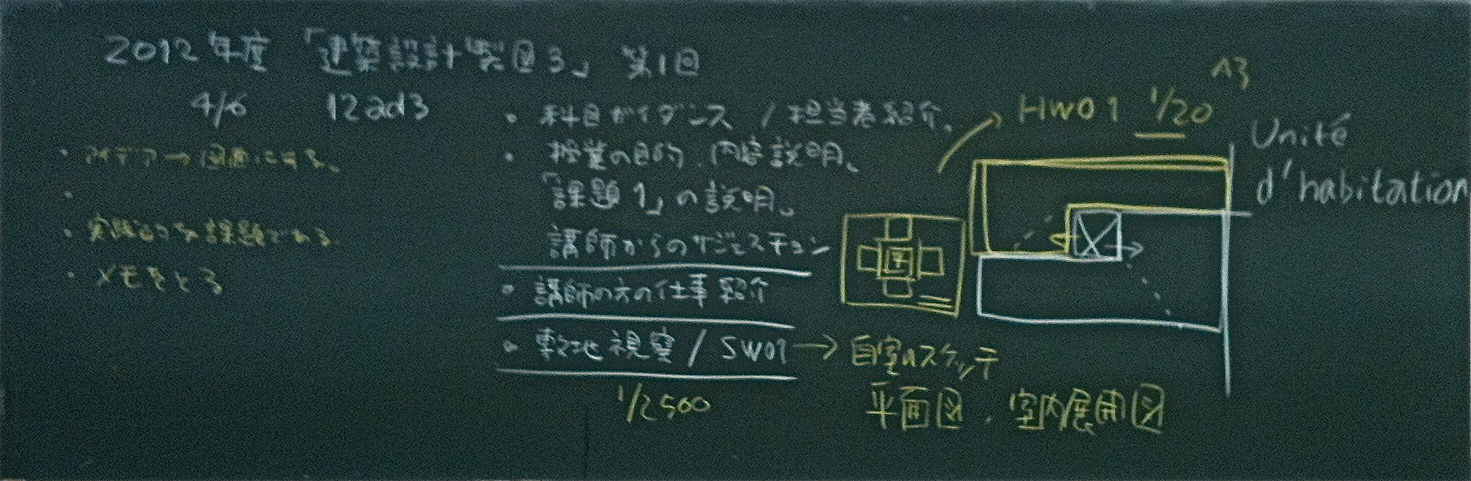 2012年度 「建築設計製図3」 第1回
4/6 12ad3
・アイデア→図面にする。
・
・実践的な課題である。
・メモをとる
・科目ガイダンス / 担当者紹介、
・授業の目的、内容説明、
「課題1」の説明、
講師からのサジェスチョン
・講師の方の仕事紹介
・敷地視察 / SW01 → 自室のスケッチ
1/2500
平面図、室内展開図
A3
HW01 1/20
Unité
d'habitation